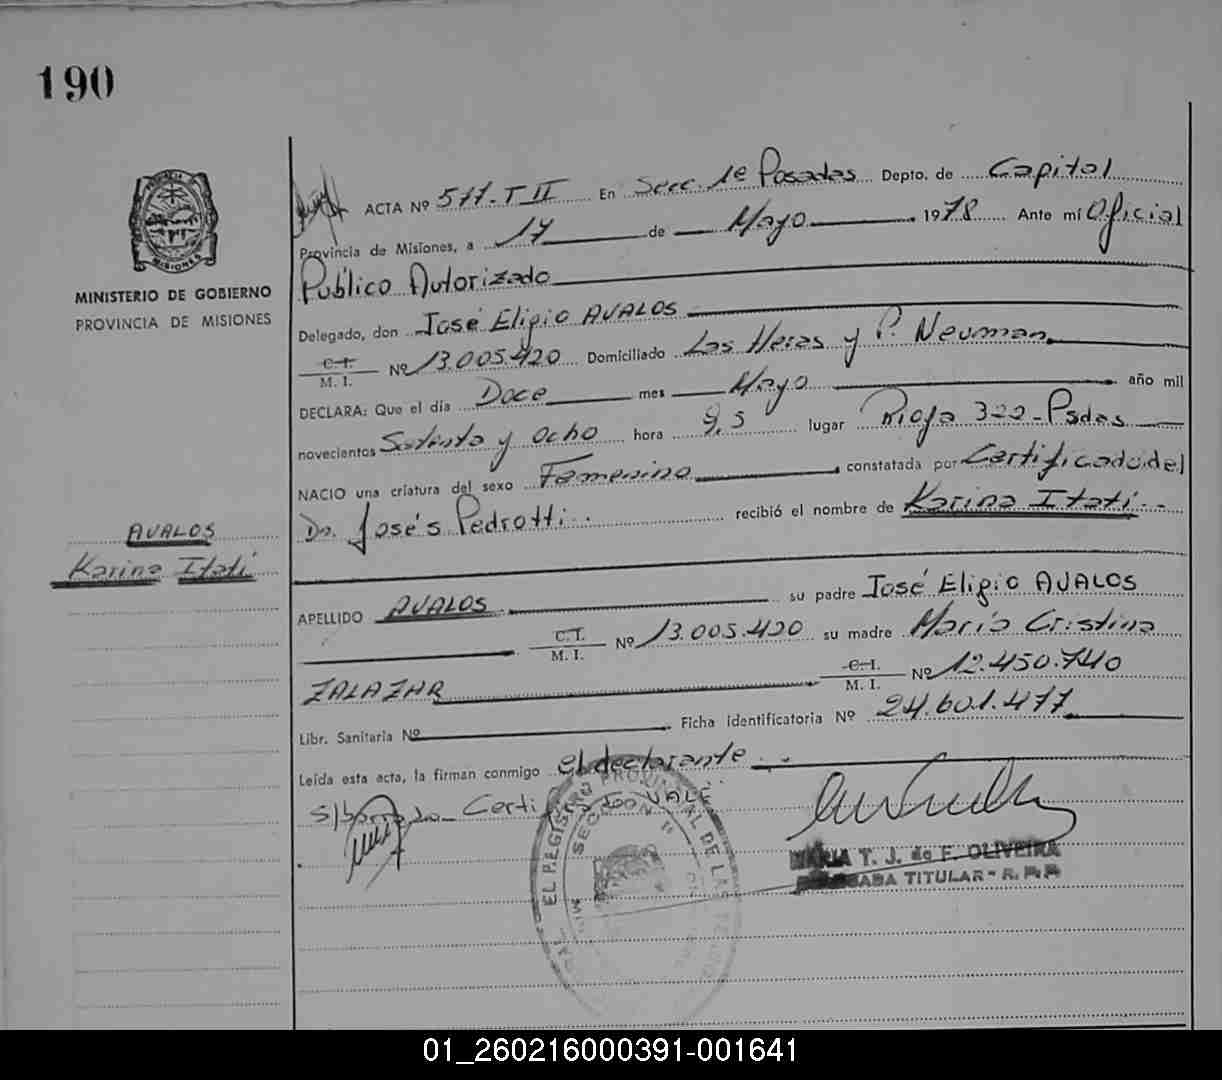 190
MINISTERIO DE GOBIERNO
PROVINCIA DE MISIONES
AVALOS
Karina Itatí
ACTA Nº 511-T II En Secc. 1ª Posadas Depto. de Capital
Provincia de Misiones, a 17 de Mayo 1978 Ante mí Oficial
Público Autorizado
Delegado, don José Eligio AVALOS
C. I. M. I. Nº 13.005.420 Domiciliado Las Heras y P. Neuman
DECLARA: Que el día Doce mes Mayo año mil
novecientos Setenta y ocho hora 9,5 lugar Rioja 322-Psdas
NACIO una criatura del sexo Femenino constatada por Certificado del
Dr. José s Pedrotti recibió el nombre de Karina Itatí
APELLIDO AVALOS su padre José Eligio AVALOS
C. I. M. I. Nº 13.005.420 su madre María Cristina
ZALAZAR C. I. M. I. Nº 12.450.740
Libr. Sanitaria Nº Ficha identificatoria Nº 24.601.477
Leída esta acta, la firman conmigo el declarante
s/borrado Certi VALE
MARIA T. J. de F. OLIVEIRA
DELEGADA TITULAR - R. P. P.
EL REGISTRO PROVINCIAL DE LAS
SECCION 1ª
01_260216000391-001641